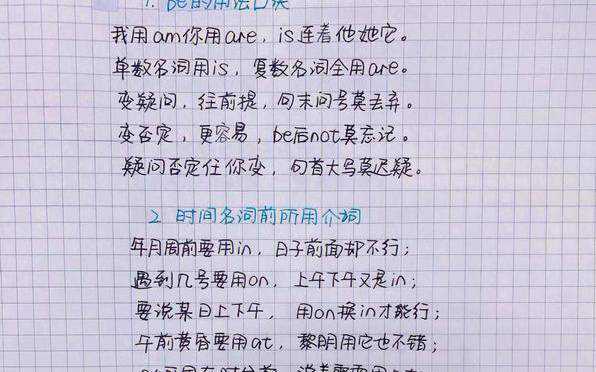 1. be的用法口诀
我用am你用are，is连着他她它。
单数名词用is，复数名词全用are。
变疑问，往前提，句末问号莫丢弃。
变否定，更容易，be后not莫忘记。
疑问否定任你变，句首大写莫迟疑。
2. 时间名词前所用介词
年月周前要用in，日子前面却不行；
遇到几号要用on，上午下午又是in；
要说某日上下午，用on换in才能行；
午前黄昏要用at，黎明用它也不错；